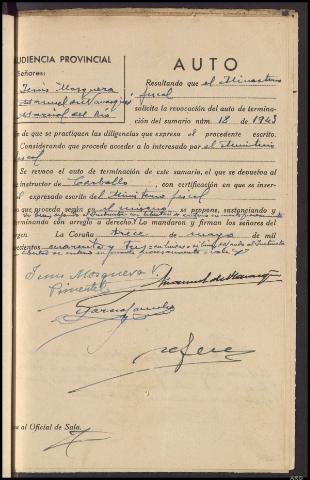 AUDIENCIA PROVINCIAL
AUTO
Señores:
Jesús Mosquera
Manuel de
Marcial del Río
Resultando que el Ministerio
fiscal
solicita la revocación del auto de termina-
ción del sumario núm. 18 de 1943
de que se practiquen las diligencias que expresa el precedente escrito.
Considerando que procede acceder a lo interesado por el Ministerio
fiscal
Se revoca el auto de terminación de este sumario, el que se devuelva al
instructor de Carballo, con certificación en que se inser-
el expresado escrito del Ministerio fiscal
que proceda según en el mismo se propone, sustanciando y
terminando con arreglo a derecho. Lo mandaron y firman los señores del
gen. La Coruña a trece de mayo de mil
vecientos cuarenta y tres
Jesús Mosquera
Pimentel
Manuel de
a al Oficial de Sala.